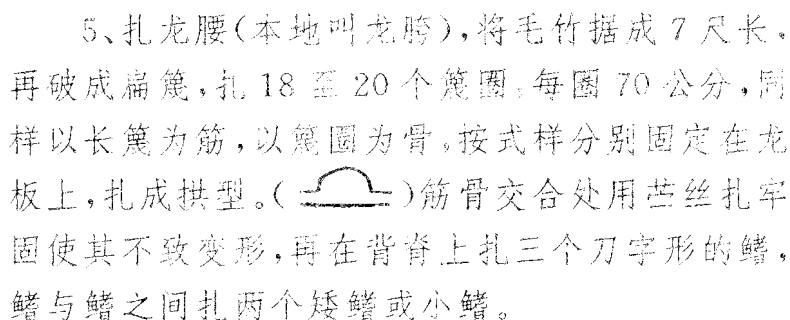 5、扎龙腰(本地叫龙胯),将毛竹据成7尺长。
再破成扁篾,扎18至20个篾圈,每圈70公分,同
样以长篾为筋,以篾圈为骨。按式样分别固定在龙
板上,扎成拱型。( )筋骨交合处用苎丝扎牢
固使其不致变形,再在背脊上扎三个刀字形的鳍,
鳍与鳍之间扎两个矮鳍或小鳍。